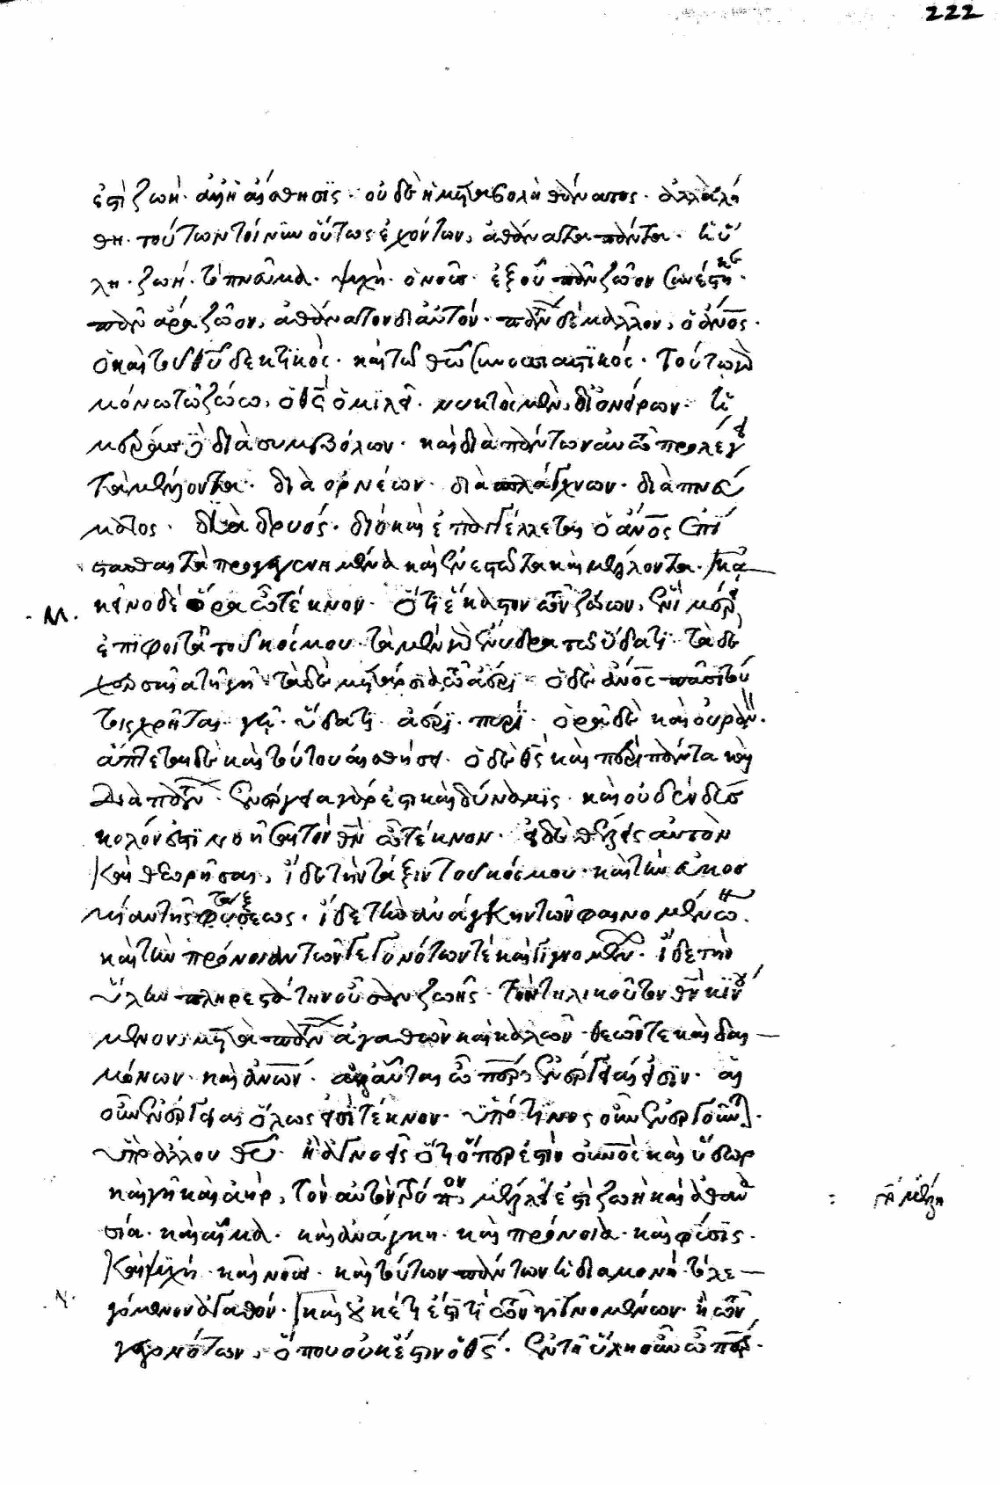 ἐστὶ ζωή· ἀλλ' ἡ αἴσθησις· οὐδὲ ἡ μεταβολὴ θάνατος· ἀλλὰ λή
θη· τούτων τοίνυν οὕτως ἐχόντων, ἀθάνατα πάντα· ἡ ὕ
λη· ζωή· τὸ πνεῦμα· ψυχὴ· ὁ νοῦς· ἐξ οὗ πᾶν ζῶον συνέστηκε·
πᾶν ἄρα ζῶον, ἀθάνατον δι' αὐτόν· πάντων δὲ μᾶλλον, ὁ ἄνος·
ὁ καὶ τοῦ θυ δεκτικὸς· καὶ τῶ θῶ συνουσιαστικός· τούτω γὰρ
μόνω τῶ ζώω, ὁ θς ὁμιλεῖ· νυκτὸς μὲν, δι' ὀνείρων· ἡ
μέρας δὲ διὰ συμβόλων· καὶ διὰ πάντων αὐτῶ προλέγει
τὰ μέλλοντα· διὰ ὀρνέων· διὰ σπλάγχνων· διὰ πνεύ
ματος· διὰ δρυός· διὸ καὶ ἐπαγγέλλεται ὁ ἄνος ἐπί
στασθαι τὰ προγεγενημένα καὶ ἐνεστῶτα καὶ μέλλοντα· κἀ
κεῖνο δὲ ὅρα ὦ τέκνον· ὅτι ἕκαστον τῶν ζώων, ἑνὶ μέρει
ἐπιφοιτᾶ τοῦ κόσμου· τὰ μὲν γὰρ ἔνυδρα τῶ ὕδατι· τὰ δὲ
χερσαῖα τῆ γῆ· τὰ δὲ μετάρσια τῶ ἀέρι· ὁ δὲ ἄνος πᾶσι τού
τοις χρῆται· γῆ· ὕδατι· ἀέρι· πυρί· ὁρᾶ δὲ καὶ οὐρανόν·
ἅπτεται δὲ καὶ τούτου αἰσθήσει· ὁ δὲ θς καὶ περὶ πάντα καὶ
διὰ πάντων· ἐνέργεια γάρ ἐστι καὶ δύναμις· καὶ οὐδὲν δύσ
κολόν ἐστι νοῆσαι τὸν θν ὦ τέκνον· εἰ δὲ θέλεις αὐτὸν
καὶ θεωρῆσαι, ἴδε τὴν τάξιν τοῦ κόσμου· καὶ τὴν εὐκοσ
μίαν τῆς τάξεως· ἴδε τὴν ἀνάγκην τῶν φαινομένων·
καὶ τὴν πρόνοιαν τῶν γεγονότων τὲ καὶ γινομένων· ἴδε τὴν
ὕλην πληρεστάτην οὖσαν ζωῆς· τὸν τηλικοῦτον θν κινού
μενον, μετὰ πάντων ἀγαθῶν καὶ καλῶν θεῶν τε καὶ δαι
μόνων· καὶ ἄνων· ἀλλ' αὗται ὦ περ, ἐνέργειαι εἰσὶν· εἰ
οὖν ἐνέργειαι ὅλως εἰσὶ τέκνον· ὑπὸ τίνος οὖν ἐνεργοῦνται·
ὑπὸ ἄλλου θυ· ἢ ἀγνοεῖς ὅτι ὥσπερ ἐστὶν οὐνὸς καὶ ὕδωρ
καὶ γῆ καὶ ἀὴρ, τὸν αὐτὸν τρόπον, μέλη ἐστὶ ζωὴ καὶ ἀθανα
σία· καὶ αἷμα· καὶ ἀνάγκη· καὶ πρόνοια· καὶ φύσις·
καὶ ψυχὴ· καὶ νοῦς· καὶ τούτων πάντων ἡ διαμονὴ τὸ λε
γόμενον ἀγαθόν· καὶ οὐκέτι ἐστί τι τῶν γιγνομένων· ἢ τῶν
γεγονότων, ὅπου οὐκ ἔστιν ὁ θς· ἐν τῆ ὕλη οὖν ὦ περ·